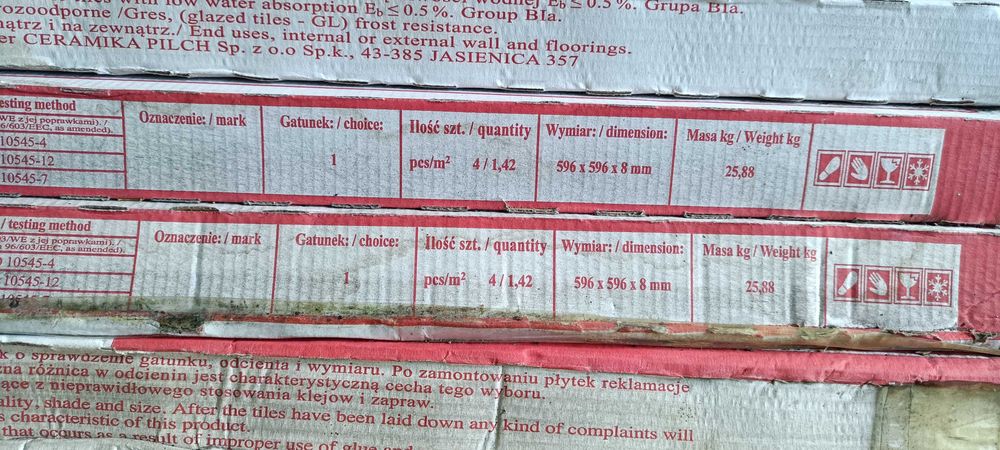 with low water absorption Eb ≤ 0.5%. Group BIa. wodnej Eb ≤ 0.5%. Grupa BIa.
rozoodporne /Gres, (glazed tiles - GL) frost resistance.
nątrz i na zewnątrz./ End uses, internal or external wall and floorings.
er CERAMIKA PILCH Sp. z o.o Sp.k., 43-385 JASIENICA 357
esting method
WE z jej poprawkami). /
6/603/EEC, as amended).
10545-4
10545-12
10545-7
Oznaczenie: / mark
Gatunek: / choice:
1
Ilość szt. / quantity
pcs/m² 4 / 1,42
Wymiar: / dimension:
596 x 596 x 8 mm
Masa kg / Weight kg
25,88
/ testing method
3/WE z jej poprawkami). /
96/603/EEC, as amended).
10545-4
10545-12
Oznaczenie: / mark
Gatunek: / choice:
1
Ilość szt. / quantity
pcs/m² 4 / 1,42
Wymiar: / dimension:
596 x 596 x 8 mm
Masa kg / Weight kg
25,88
k o sprawdzenie gatunku, odcienia i wymiaru. Po zamontowaniu płytek reklamacje
zna różnica w odcienin jest charakterystyczną cecha tego wyboru.
ące z nieprawidłowego stosowania klejow i zapraw.
ality, shade and size. After the tiles have been laid down any kind of complaints will
s characteristic of this product.
that occurs as a result of improper use of glue and